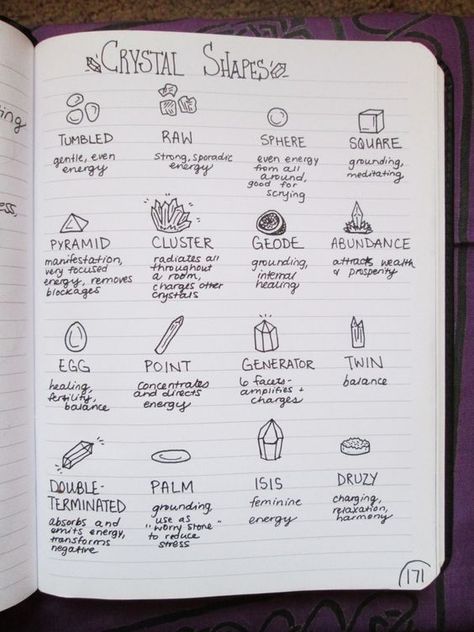 CRYSTAL SHAPES
TUMBLED
gentle, even
energy
RAW
strong, sporadic
energy
SPHERE
even energy
from all
around,
good for
scrying
SQUARE
grounding,
meditating,
PYRAMID
manifestation,
very focused
energy, removes
blockages
CLUSTER
radiates all
throughout
a room,
charges other
crystals
GEODE
grounding,
internal
healing
ABUNDANCE
attracts wealth
& prosperity
EGG
healing,
fertility,
balance
POINT
concentrates
and directs
energy
GENERATOR
6 facets-
amplifies +
charges
TWIN
balance
DOUBLE-
TERMINATED
absorbs and
emits energy,
transforms
negative
PALM
grounding,
use as
"worry stone"
to reduce
stress
ISIS
feminine
energy
DRUZY
charging,
relaxation,
harmony
171